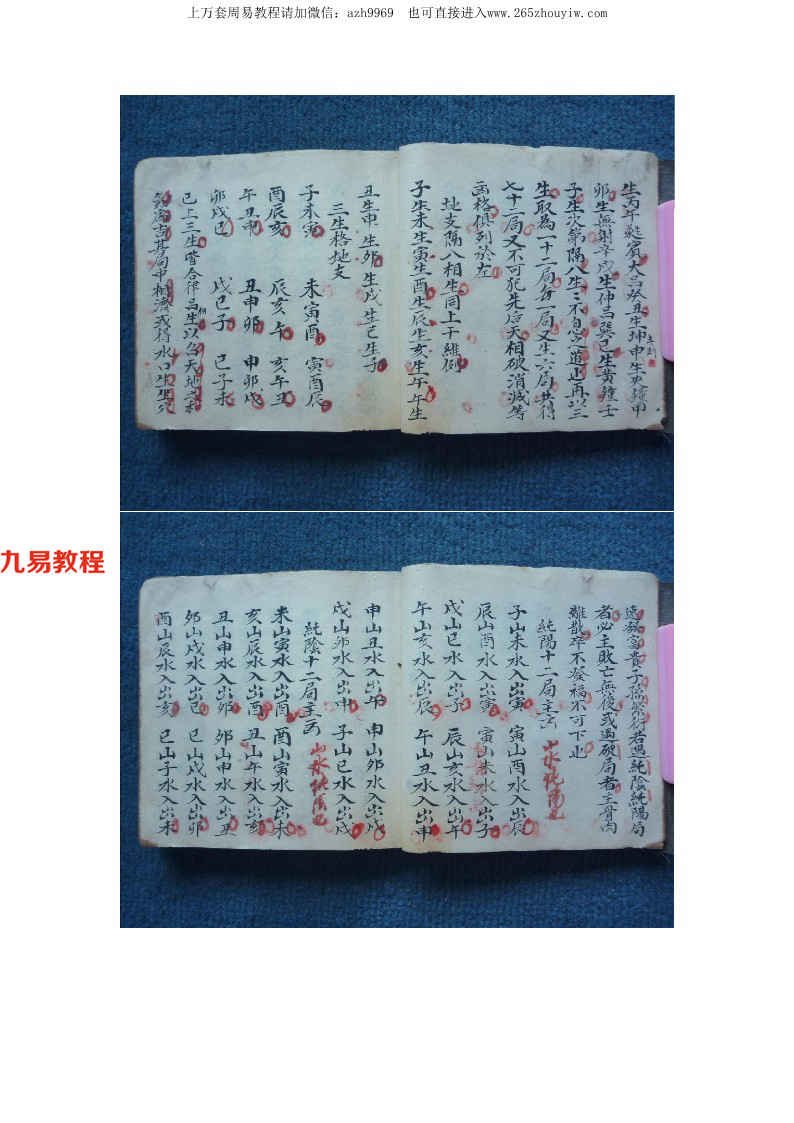 上万套周易教程请加微信：azh9969　也可直接进入www.265zhouyiw.com
生丙午蕤賓大吕癸丑生坤申生夷鐘甲
卯生無射辛戌生仲吕巽巳生黄鐘壬
子生次第隔八生生不息之道也再以三
生取為一十二局每一局又生六局共得
七十二局又不可犯先后天相破消滅等
畵格偵列於左
地支隔八相生同上干維例
子生未生寅生酉生辰生亥生午午生
丑生申生卯生戌生巳生子
三生格地支
子未寅　未寅酉　寅酉辰
酉辰亥　辰亥午　亥午丑
午丑申　丑申卯　申卯戌
卯戌巳　戌巳子　巳子未
已上三生皆合律吕相生以台天地之
局中相濟或得水口生生
九易教程
富貴子孫若遇純陰純陽局
者必主敗亡無後或遇破局者主骨肉
離散卒不發福不可下也
純陽十二局主
山水純陽也
子山未水入出寅　寅山酉水入出辰
辰山酉水入出寅　寅山未水入出子
戌山巳水入出子　辰山亥水入出午
午山亥水入出辰　午山丑水入出申
申山丑水入出午　申山卯水入出戌
戌山卯水入出申　子山巳水入出戌
純陰十二局主
山水純陰也
未山寅水入出酉　酉山寅水入出未
亥山辰水入出酉　丑山午水入出亥
丑山申水入出卯　卯山申水入出丑
卯山戌水入出巳　巳山戌水入出卯
酉山辰水入出亥　巳山子水入出未